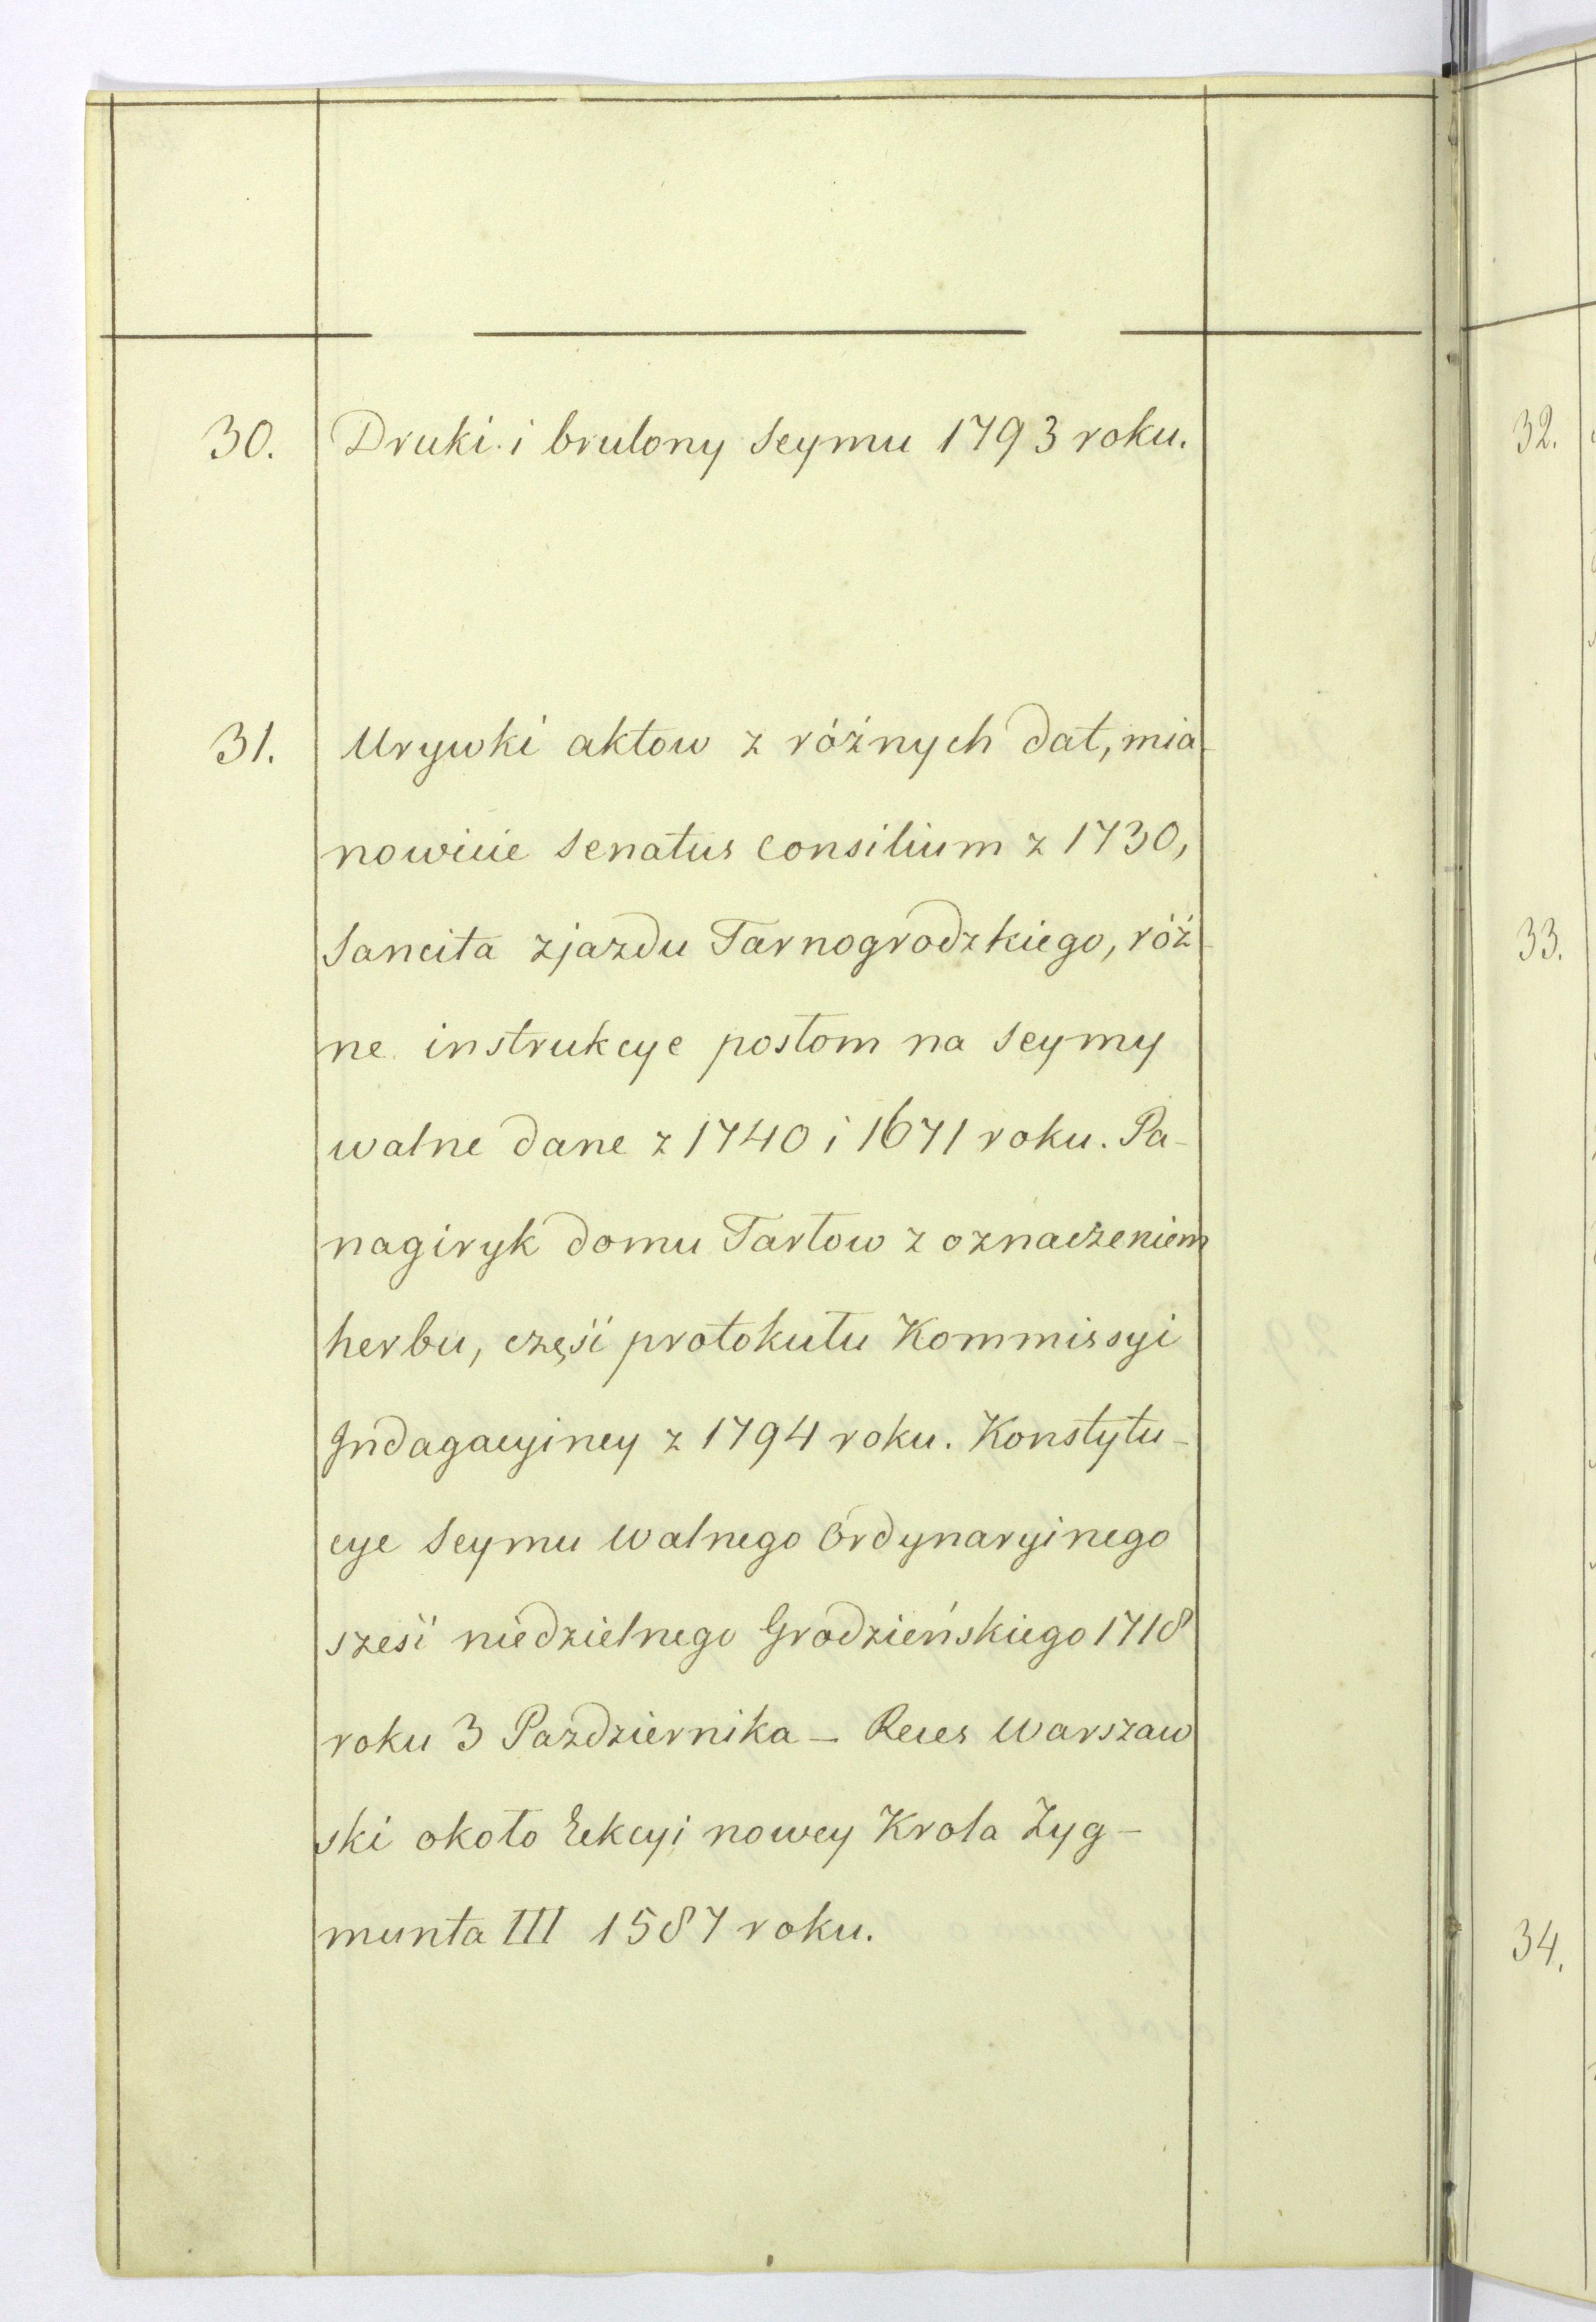 30. Druki i brulony Seymu 1793 roku.
31. Urywki aktow z różnych dat, mia-
nowicie Senatus Consilium z 1730,
Sancita zjazdu Tarnogrodzkiego, róż-
ne instrukcye posłom na Seymy
walne dane z 1740 i 1671 roku. Pa-
nagiryk domu Tarłow z oznaczeniem
herbu, część protokułu Kommissyi
Indagacyiney z 1794 roku. Konstytu-
cye Seymu Walnego Ordynaryinego
sześć niedzielnego Grodzieńskiego 1718
roku 3 Pazdziernika – Reces Warszaw
ski około Elekcyi nowey Krola Zyg-
munta III 1587 roku.
32.
33.
34.